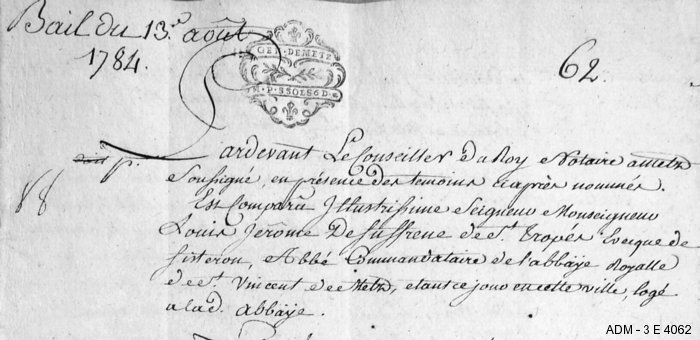 Bail du 13.e août
1784.
GEN. DE METZ
M.P. 5 SOLS 6 D.
62
Pardevant Le Conseiller du Roy Notaire a metz
Soussigné, en présence des temoins cy après nommés.
Est Comparû Illustrissime Seigneur Monseigneur
Louis Jerôme De Suffrene de St. Tropés Eveque de
Sisteron, Abbé Commandataire de l'abbaye Royalle
de St. Vincent de Metz, etant ce jour en cette ville, logé
a lad. abbaye.
ADM - 3 E 4062